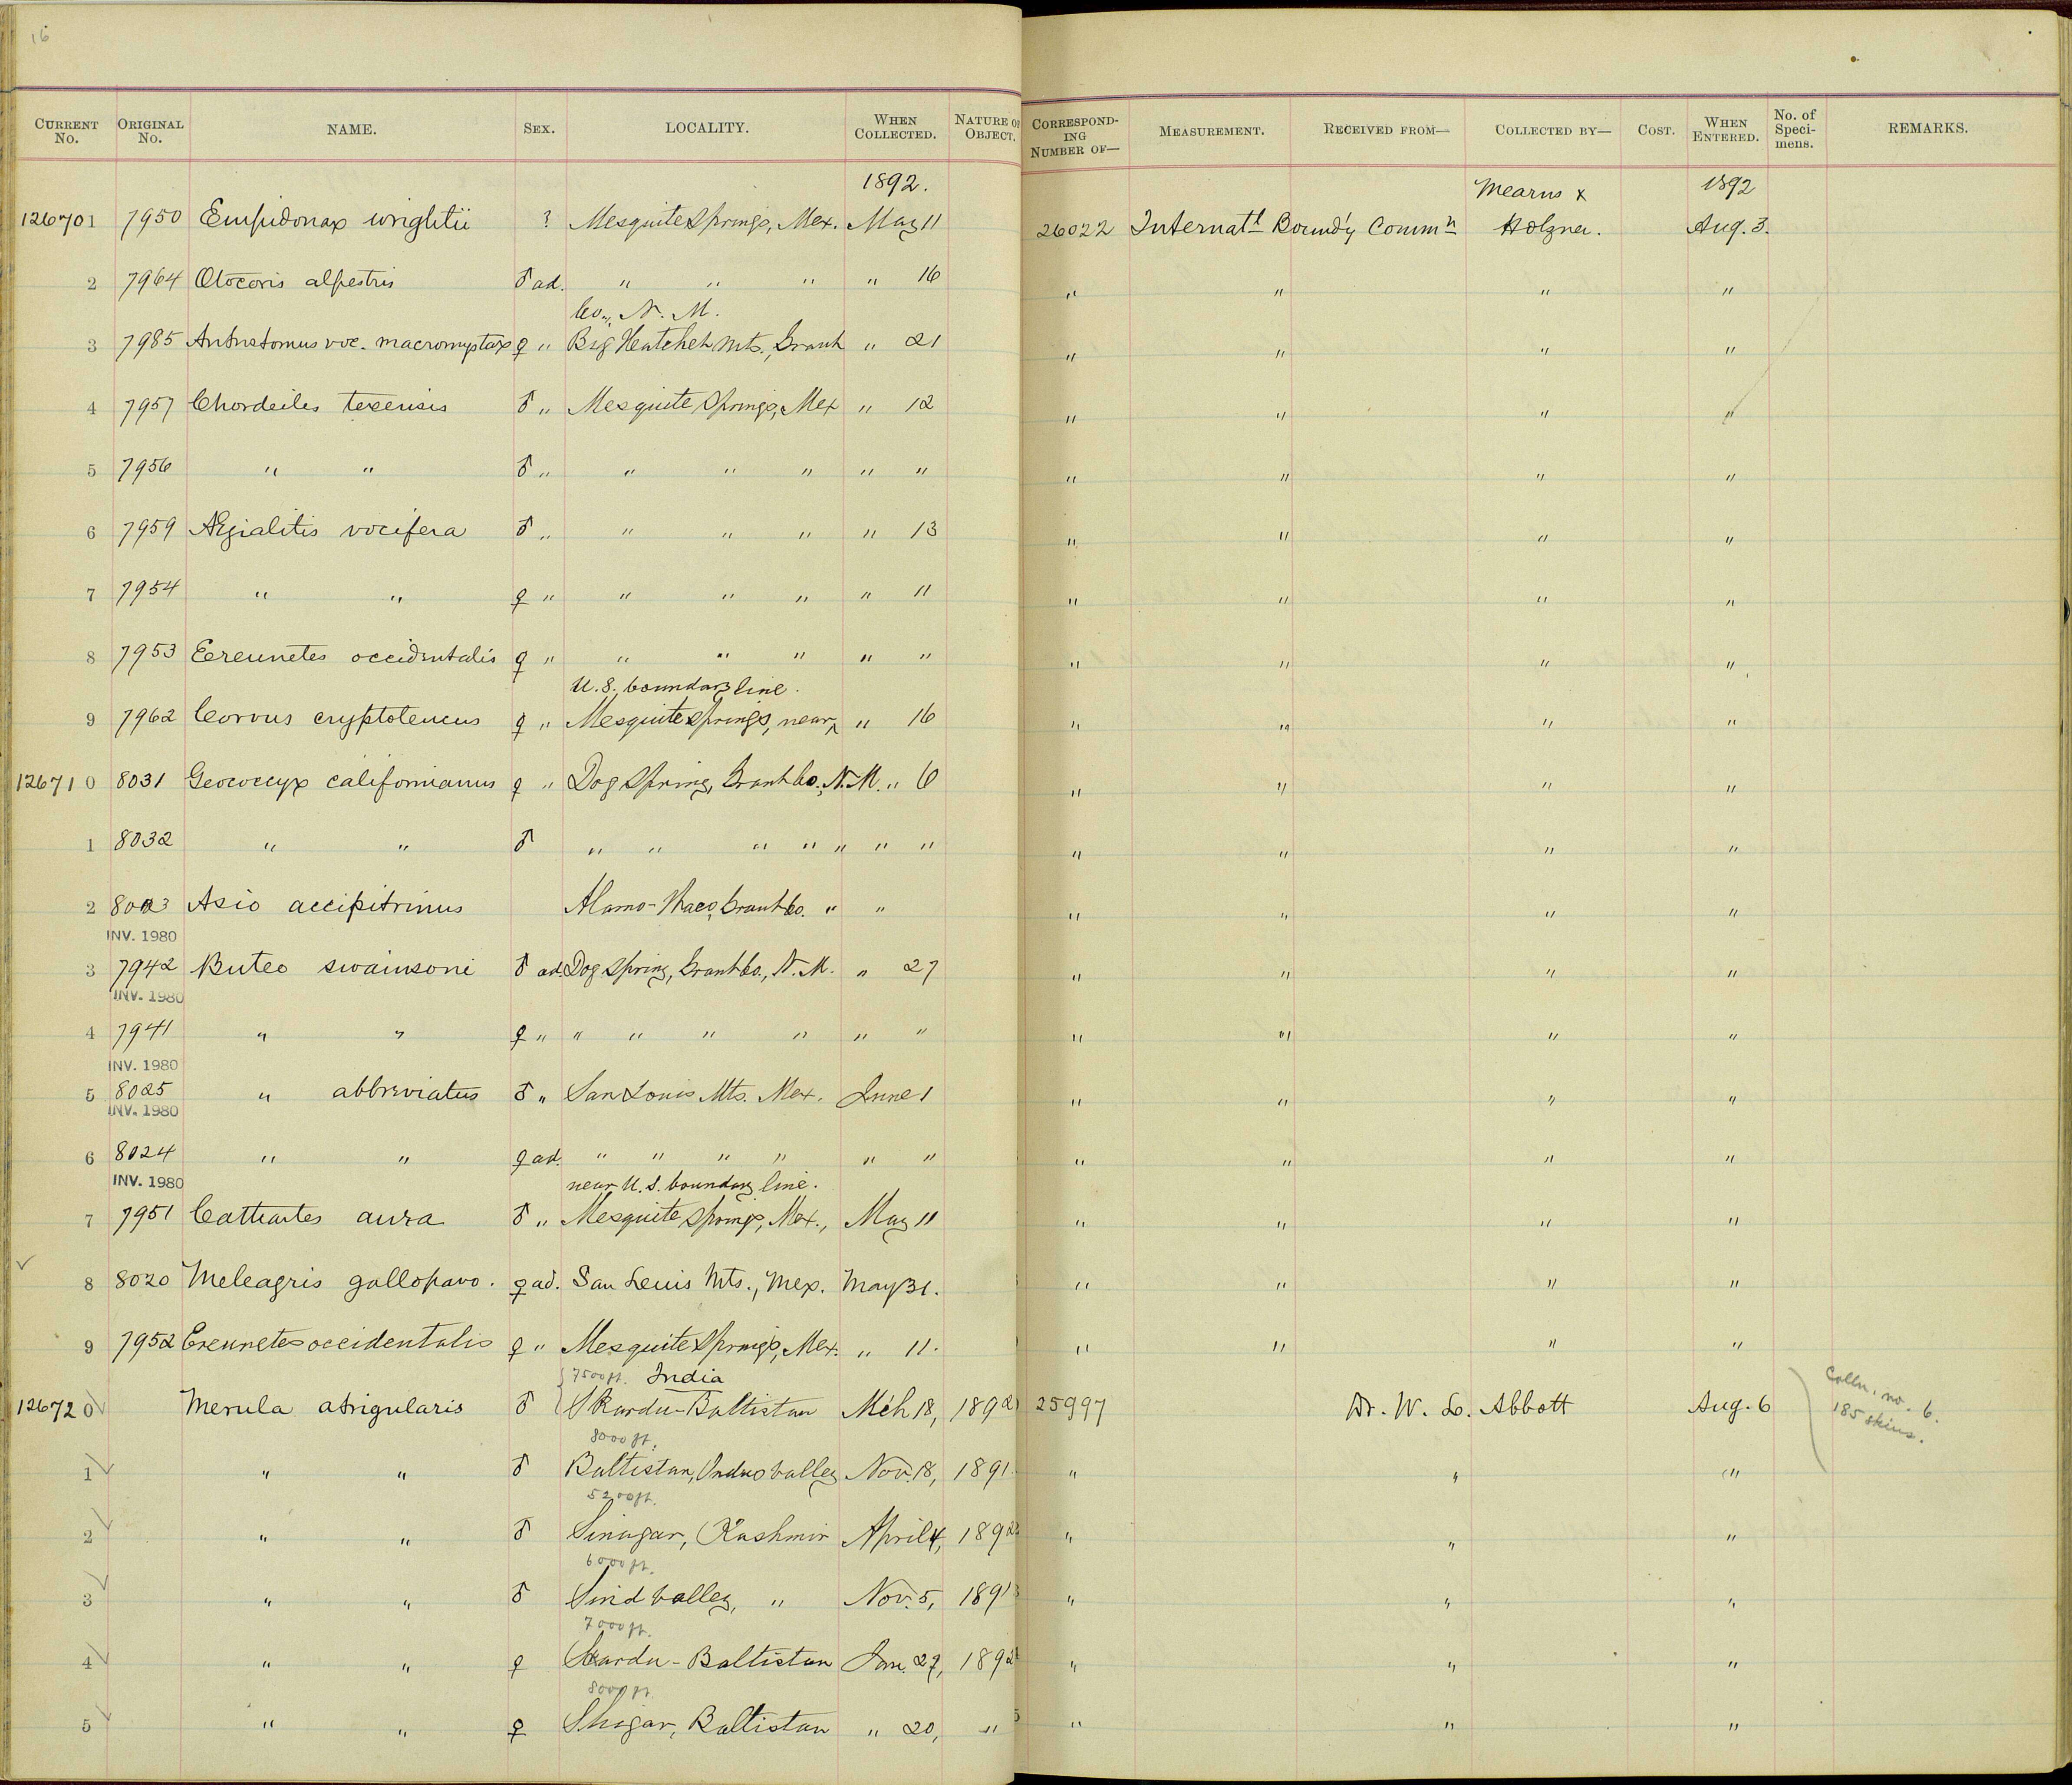 16
CURRENT No. ORIGINAL No. NAME. SEX. LOCALITY. WHEN COLLECTED. NATURE OF OBJECT. CORRESPONDING NUMBER OF— MEASUREMENT. RECEIVED FROM— COLLECTED BY— COST. WHEN ENTERED. No. of Specimens. REMARKS.
1892. Mearns & 1892
126701 7950 Empidonax wrightii ? Mesquite Springs, Mex. May 11 26022 Internatl Bound'y Commn Holzner. Aug. 3.
2 7964 Otocoris alpestris ♂ ad. " " " " 16 " " " "
Co., N. M.
3 7985 Antrostomus voc. macromystax ♀ " Big Hatchet Mts., Grant " 21 " " " "
4 7957 Chordeiles texensis ♂ " Mesquite Springs, Mex " 12 " " " "
5 7956 " " ♂ " " " " " " " " " "
6 7959 Ægialitis vocifera ♂ " " " " " 13 " " " "
7 7954 " " ♀ " " " " " 11 " " " "
8 7953 Ereunetes occidentalis ♀ " " " " " " " " " "
U.S. boundary line.
9 7962 Corvus cryptoleucus ♀ " Mesquite Springs, near " 16 " " " "
126710 8031 Geococcyx californianus ♀ " Dog Spring, Grant Co., N.M. " 6 " " " "
1 8032 " " ♂ " " " " " " " " " " "
2 8023 Asio accipitrinus Alamo- Grant Co. " " " " " "
INV. 1980
3 7942 Buteo swainsoni ♂ ad. Dog Spring, Grant Co., N. M. " 27 " " " "
INV. 1980
4 7941 " " ♀ " " " " " " " " " " "
INV. 1980
5 8025 " abbreviatus ♂ " San Louis Mts. Mex. June 1 " " " "
INV. 1980
6 8024 " " ♀ ad. " " " " " " " " " "
INV. 1980 near U.S. boundary line.
7 7951 Cathartes aura ♂ " Mesquite Springs, Mex., May 11 " " " "
8 8020 Meleagris gallopavo. ♀ ad. San Luis Mts., Mex. May 31. " " " "
9 7952 Ereunetes occidentalis ♀ " Mesquite Springs, Mex. " 11. " " " "
7500 ft. India
126720 Merula atrigularis ♂ Skardu-Baltistan Mch 18, 1892 25997 Dr. W. L. Abbott Aug. 6 Colln. no. 6. 185 skins.
8000 ft.
1 " " ♂ Baltistan, Indus Valley Nov. 18, 1891 " " "
5200 ft.
2 " " ♂ Sinagar, Kashmir April 4, 1892 " " "
6000 ft.
3 " " ♂ Sind Valley, " Nov. 5, 1891 " " "
7000 ft.
4 " " ♀ Skardu - Baltistan Jan. 27, 1892 " " "
8000 ft.
5 " " ♀ Shigar, Baltistan " 20, " " " "